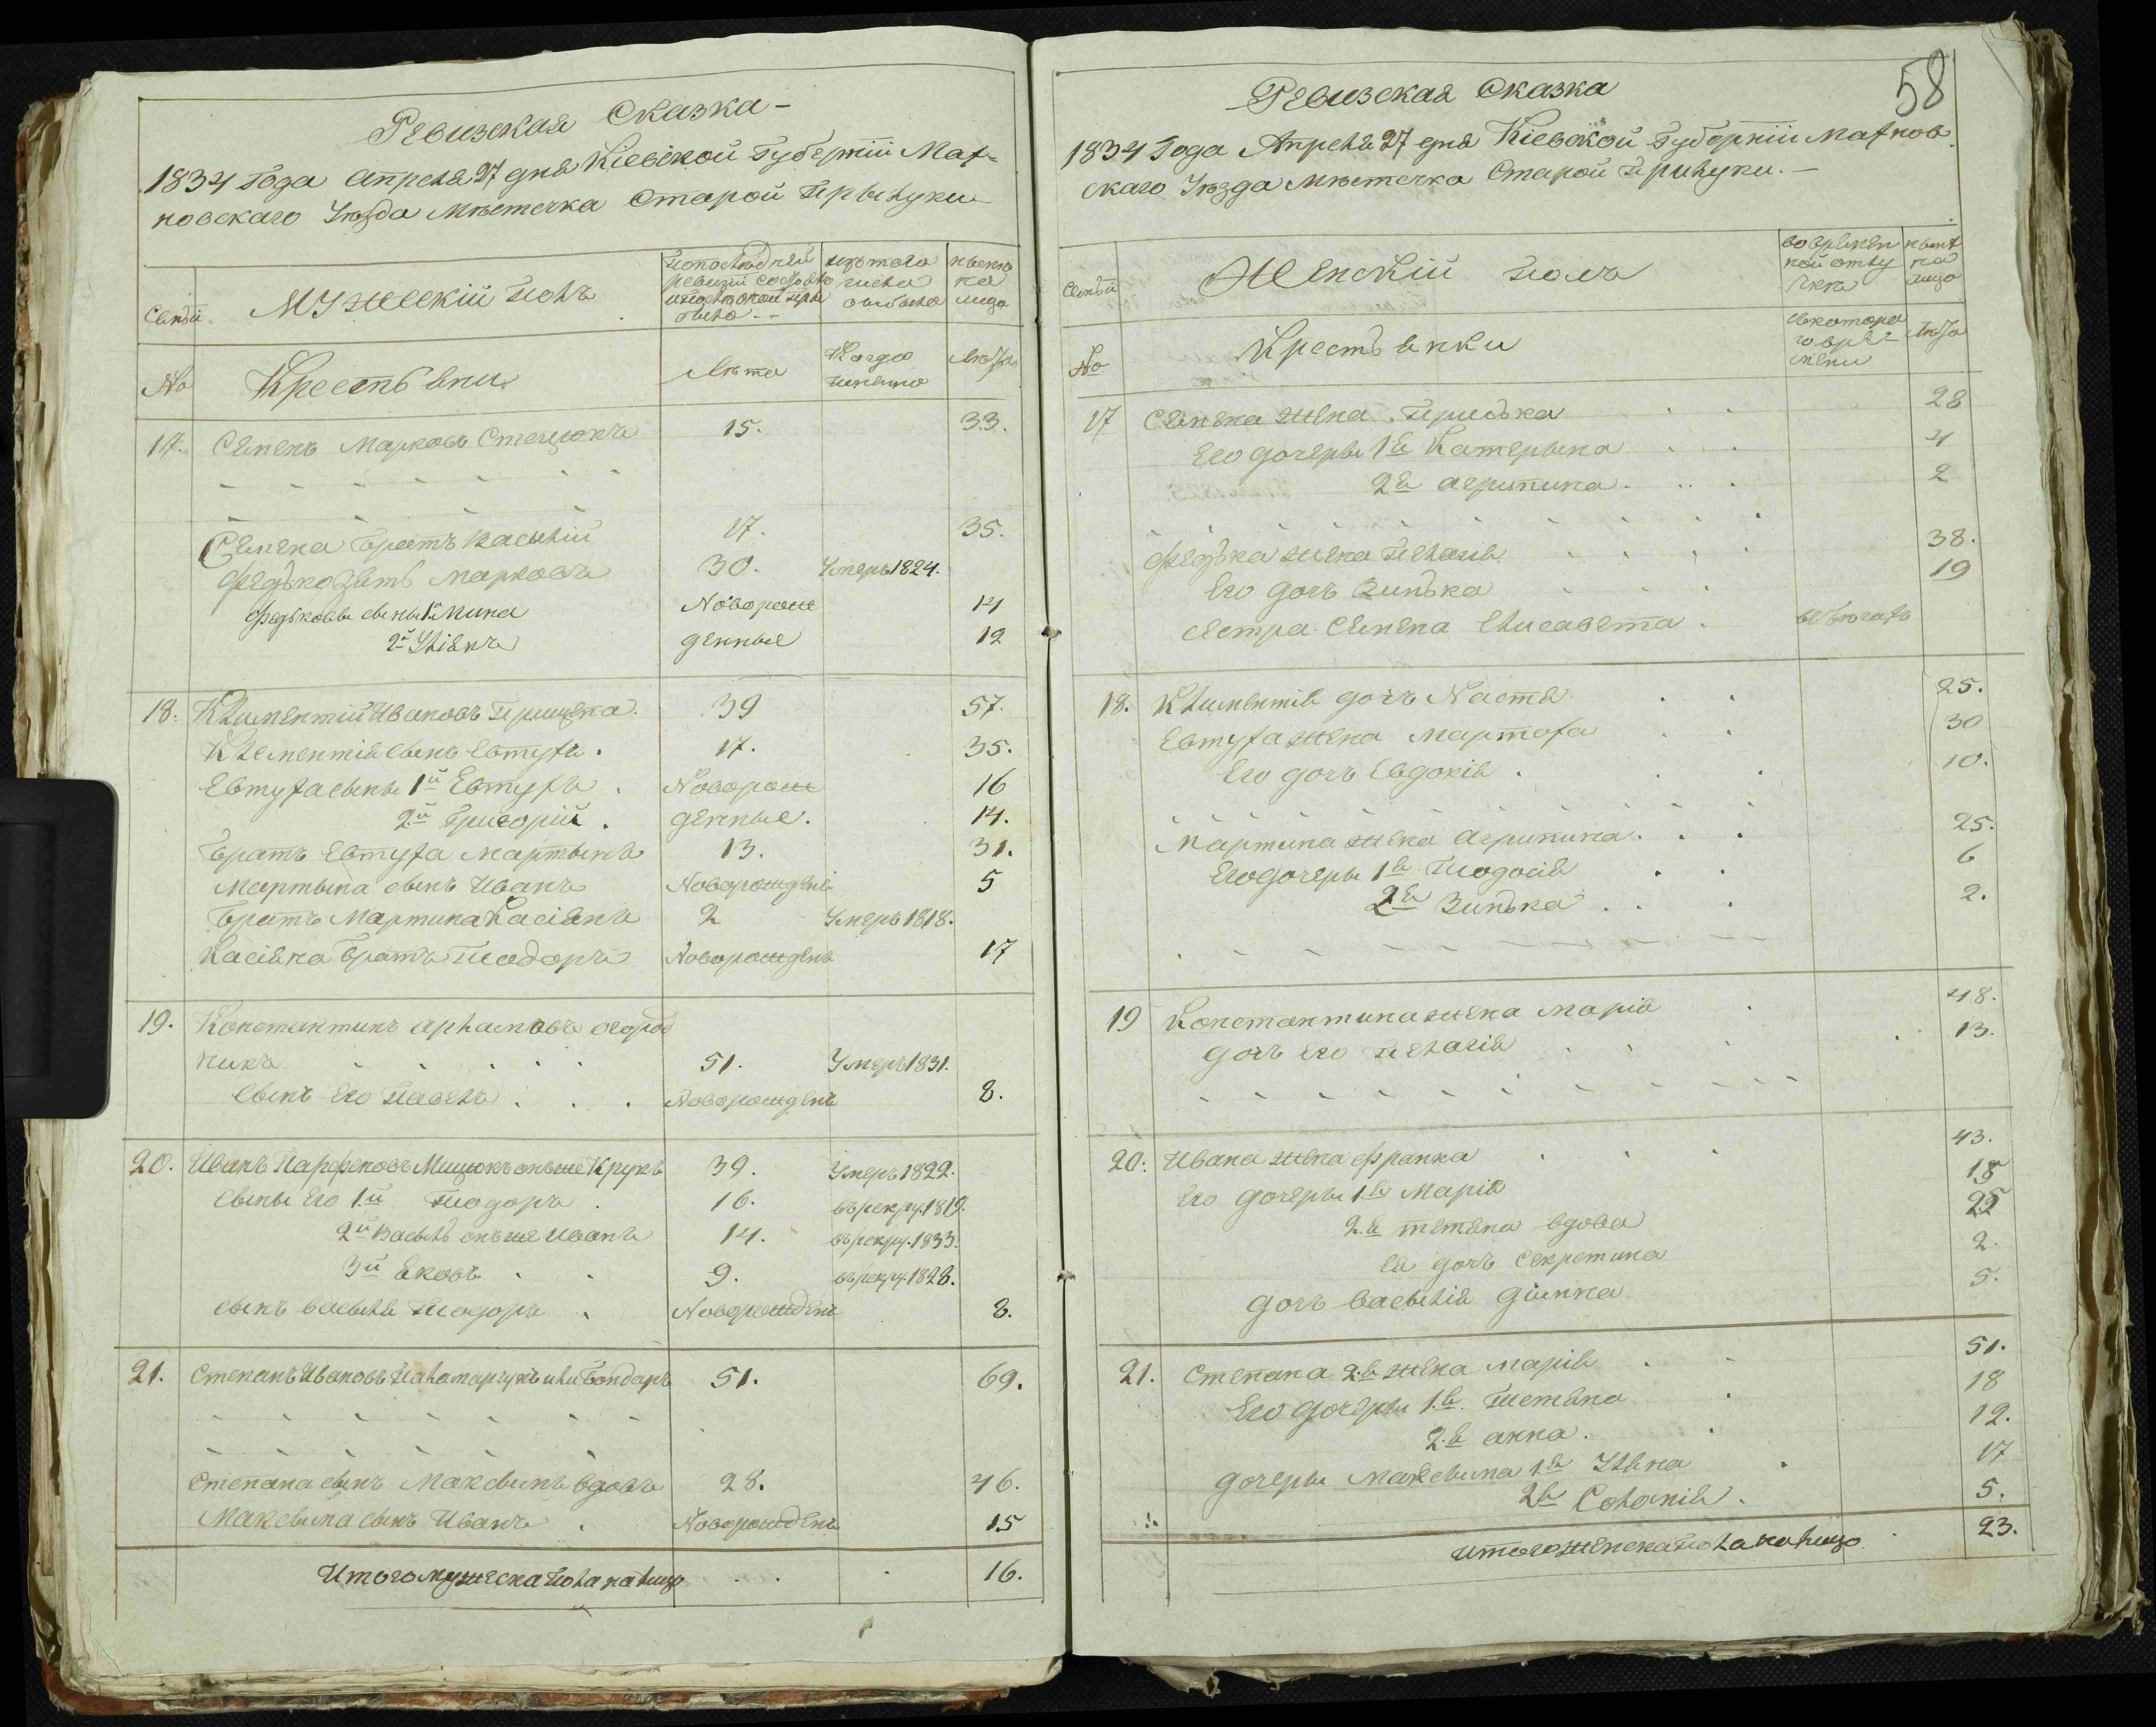 Ревизская Сказка
1834 года апреля 27 дня Кіевской Губерніи Мах=
новскаго Уезда Местечка Старой Прылуки
Семьи
Мужескій полъ
По последней ревизіи состояло и после оной прибыло
изъ того числа выбыло
ныне на лицо
№
Крестьяни
Лета
Когда имянно
Лета
17. Семенъ Марковъ Стецюкъ 15. 33.
Семена братъ Василій 17. 35.
Федько зять Марковъ 30. Умеръ 1824.
Федьковы сыны 1й Мина Новорож 14
2й Улянъ денные 12
18. Климентій Ивановъ Грицека 39 57.
Клементія сынъ Евтухъ 17. 35.
Евтуха сыны 1й Евтухъ Новорож 16
2й Григорій денные. 14.
братъ Евтуха Мартынъ 13. 31.
Мартына сынъ Иванъ Новорожденъ 5
братъ Мартина Касіянъ 2 Умеръ 1818.
Касіяна братъ Теодоръ Новорожденъ 17
19. Константинъ Архиповъ огород
никъ 51. Умеръ 1831.
Сынъ его Павелъ Новорожденъ 8.
20. Иванъ Парфеновъ Мицюкъ онъ же Крукъ 39. Умеръ 1822.
Сыны его 1й Теодоръ 16. въ рекру. 1819.
2й Василь онъ же Иванъ 14. въ рекру. 1833.
3й Яковъ 9. въ рекру. 1828.
сынъ Василя Теодоръ Новорожденъ 8.
21. Степанъ Ивановъ Паламарчукъ или Бондаръ 51. 69.
Степана сынъ Максымъ вдовъ 28. 46.
Максыма сынъ Иванъ Новорожденъ 15
Итого мужеска пола на лицо 16.
58
Ревизская Сказка
1834 Года Апреля 27 дня Кіевской Губерніи Махнов
скаго Уезда Местечка Старой Прилуки.
Семьи
Женскій полъ
во времен ной отлу чке
ныне на лицо
№
Крестьянки
съ котора го вре= мени
Лета
17 Семена жена Приська 28
Его дочеры 1я Катерына 4
2я Агрипина 2
Федька жена Пелагія 38.
Его дочъ Зинька 19
сестра Семена Елисавета
18. Климентія дочъ Настя 25.
Евтуха жена Мартоха 30
Его дочъ Евдокія 10.
Мартина жена Агрипина 25.
Его дочеры 1я Теодосія 6
2я Зинька 2.
19 Константина жена Марія 48.
дочъ его Пелагія 13.
20. Ивана жена Франка 43.
Его дочеры 1я Марія 15
2я Тетяна вдова 25
Ея дочъ Секретина 2.
дочъ Василія Дімка 5.
21. Степана 2я жена Марія 51.
Его дочеры 1я Тетяна 18
2я Анна 12.
дочеры Максыма 1я Уляна 17
2я Соломія 5.
Итого женска пола на лицо 23.